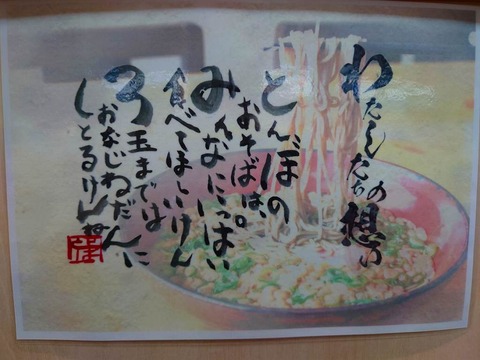 わたしたちの想い
とんぼの
おそばは、
みんなにいっぱい
食べてほしいけん
3玉までは
おなじねだんに
しとるけんね